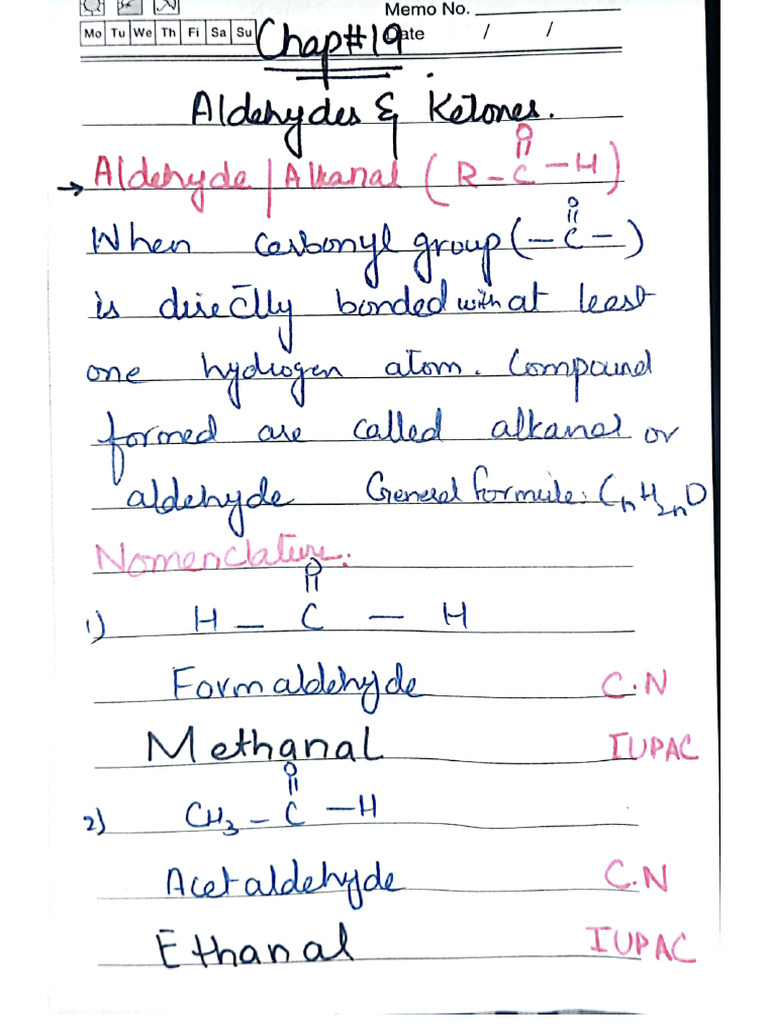 Memo No.
Mo Tu We Th Fi Sa Su Date / /
Chap#19
Aldehydes & Ketones.
→ Aldehyde / Alkanal (R-C-H)
O
When carbonyl group (-C-)
O
is directly bonded with at least
one hydrogen atom. Compound
formed are called alkanal or
aldehyde General formula: CnH2nO
Nomenclature:
O
1) H - C - H
Formaldehyde C.N
Methanal IUPAC
O
2) CH3 - C - H
Acetaldehyde C.N
Ethanal IUPAC